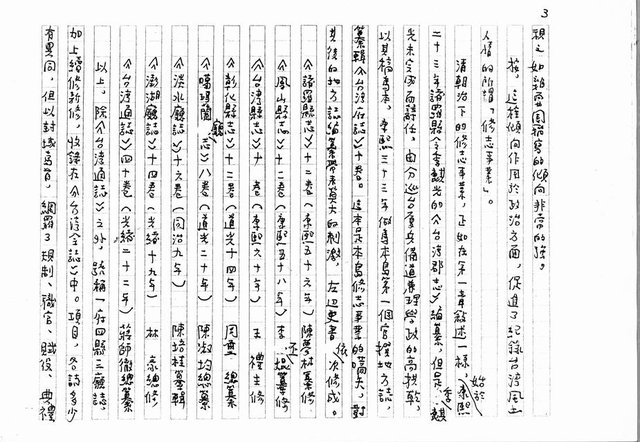 3
親之如範圍羅察的傾向非常的強。
按,這種傾向作用於政治方面,促進了紀錄台灣風土
人情的所謂「修志事業」。
清朝治下的修志事業,正如在第一章敘述一樣,始於康熙
二十三年諸羅縣令季麒光的《台灣郡志》編纂,但是季麒
光未完成而辭任,由分巡台廈兵備道兼理學政的高拱乾,
以其稿為本,康熙三十三年做為本島第一個官撰地方誌,
纂輯《台灣府誌》十卷。這本是本島修志事業的嚆矢,對
其後的地方誌編纂帶來莫大的刺激,左迎史書依次修成。
《諸羅縣志》十二卷(康熙五十六年)陳夢林纂修
《鳳山縣志》十二卷(康熙五十八年)李丕煜纂修
《台灣縣志》十卷(康熙五十九年)王禮主修
《彰化縣志》十二卷(道光十四年)周璽總纂
《噶瑪蘭廳志》八卷(道光二十年)陳淑均總纂
《淡水廳誌》十六卷(同治九年)陳培桂纂輯
《澎湖廳誌》十四卷(光緒十九年)林豪總修
《台灣通誌》四十卷(光緒二十二年)蔣師轍總纂
以上,除《台灣通誌》之外,號稱一府四縣三廳誌,
加上續修新修,收錄在《台灣全誌》中。項目,各誌多少
有異同,但以封域為首,網羅了規制、職官、賦役、典禮